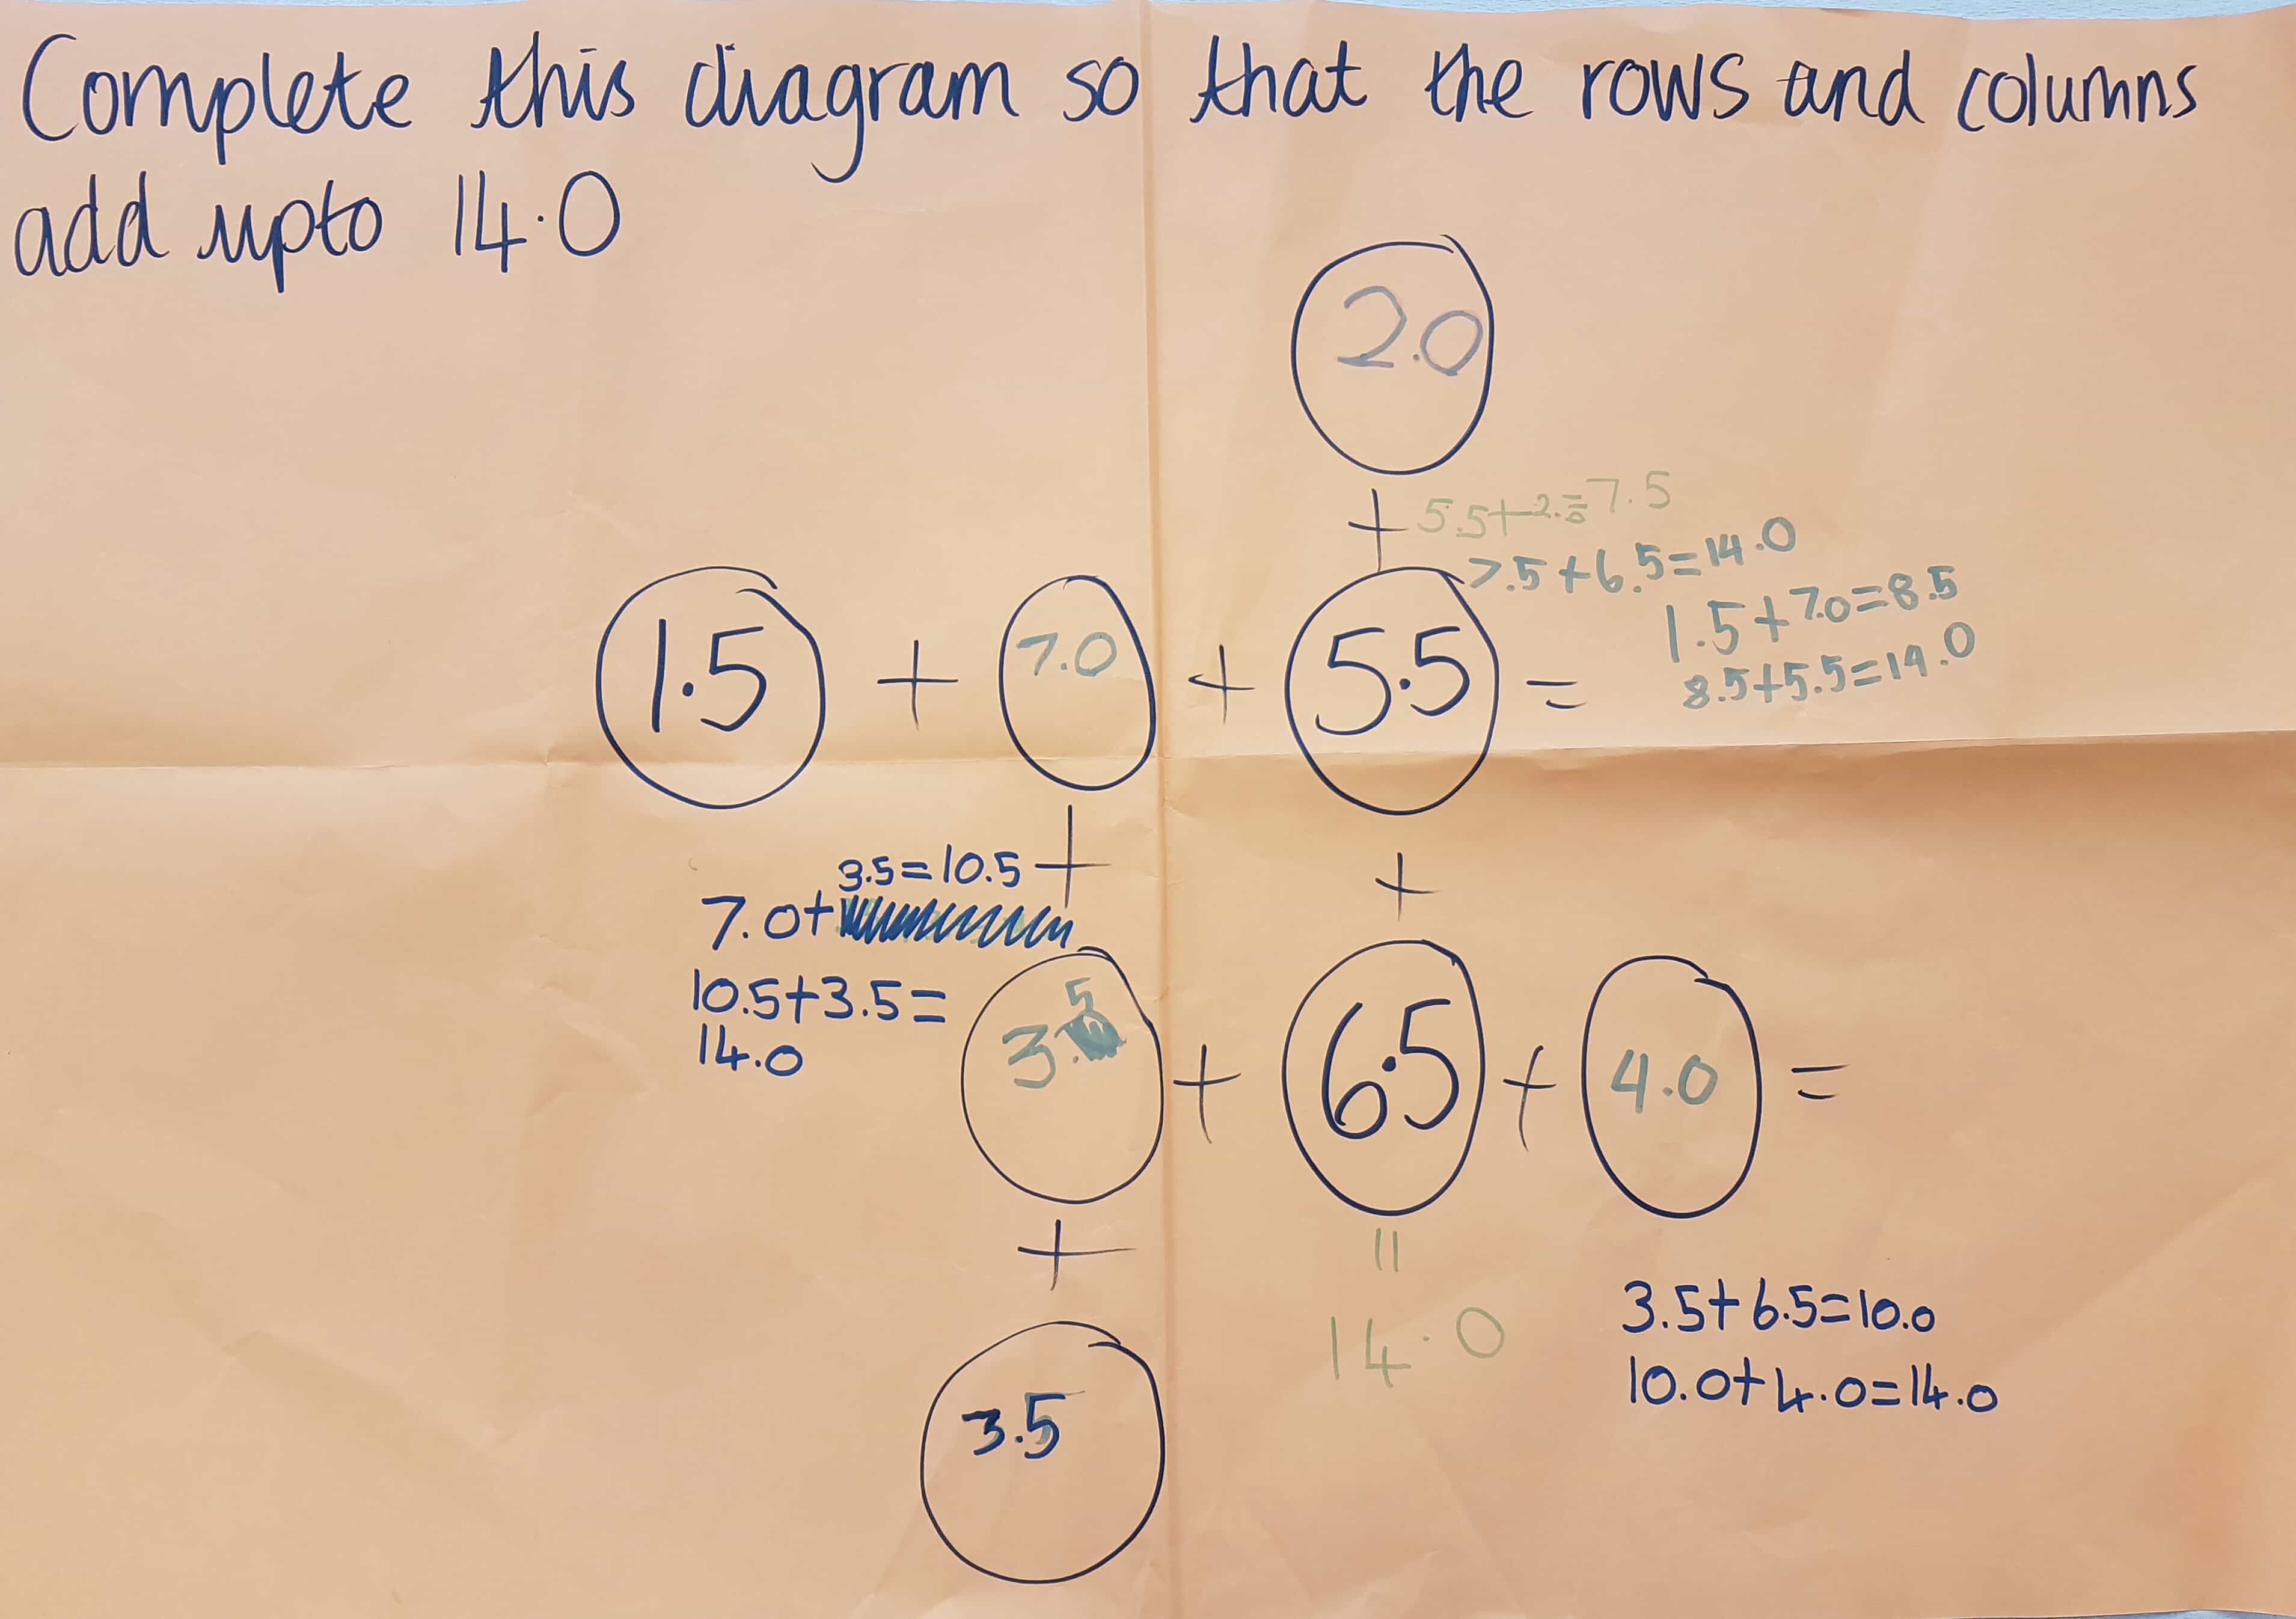 Complete this diagram so that the rows and columns
add upto 14.0
2.0
+ 5.5+2.0=7.5
7.5+6.5=14.0
1.5 + 7.0 + 5.5 =
1.5+7.0=8.5
8.5+5.5=14.0
+ +
3.5=10.5
7.0+
10.5+3.5=
14.0
3.5 + 6.5 + 4.0 =
+ =
14.0
3.5+6.5=10.0
10.0+4.0=14.0
3.5